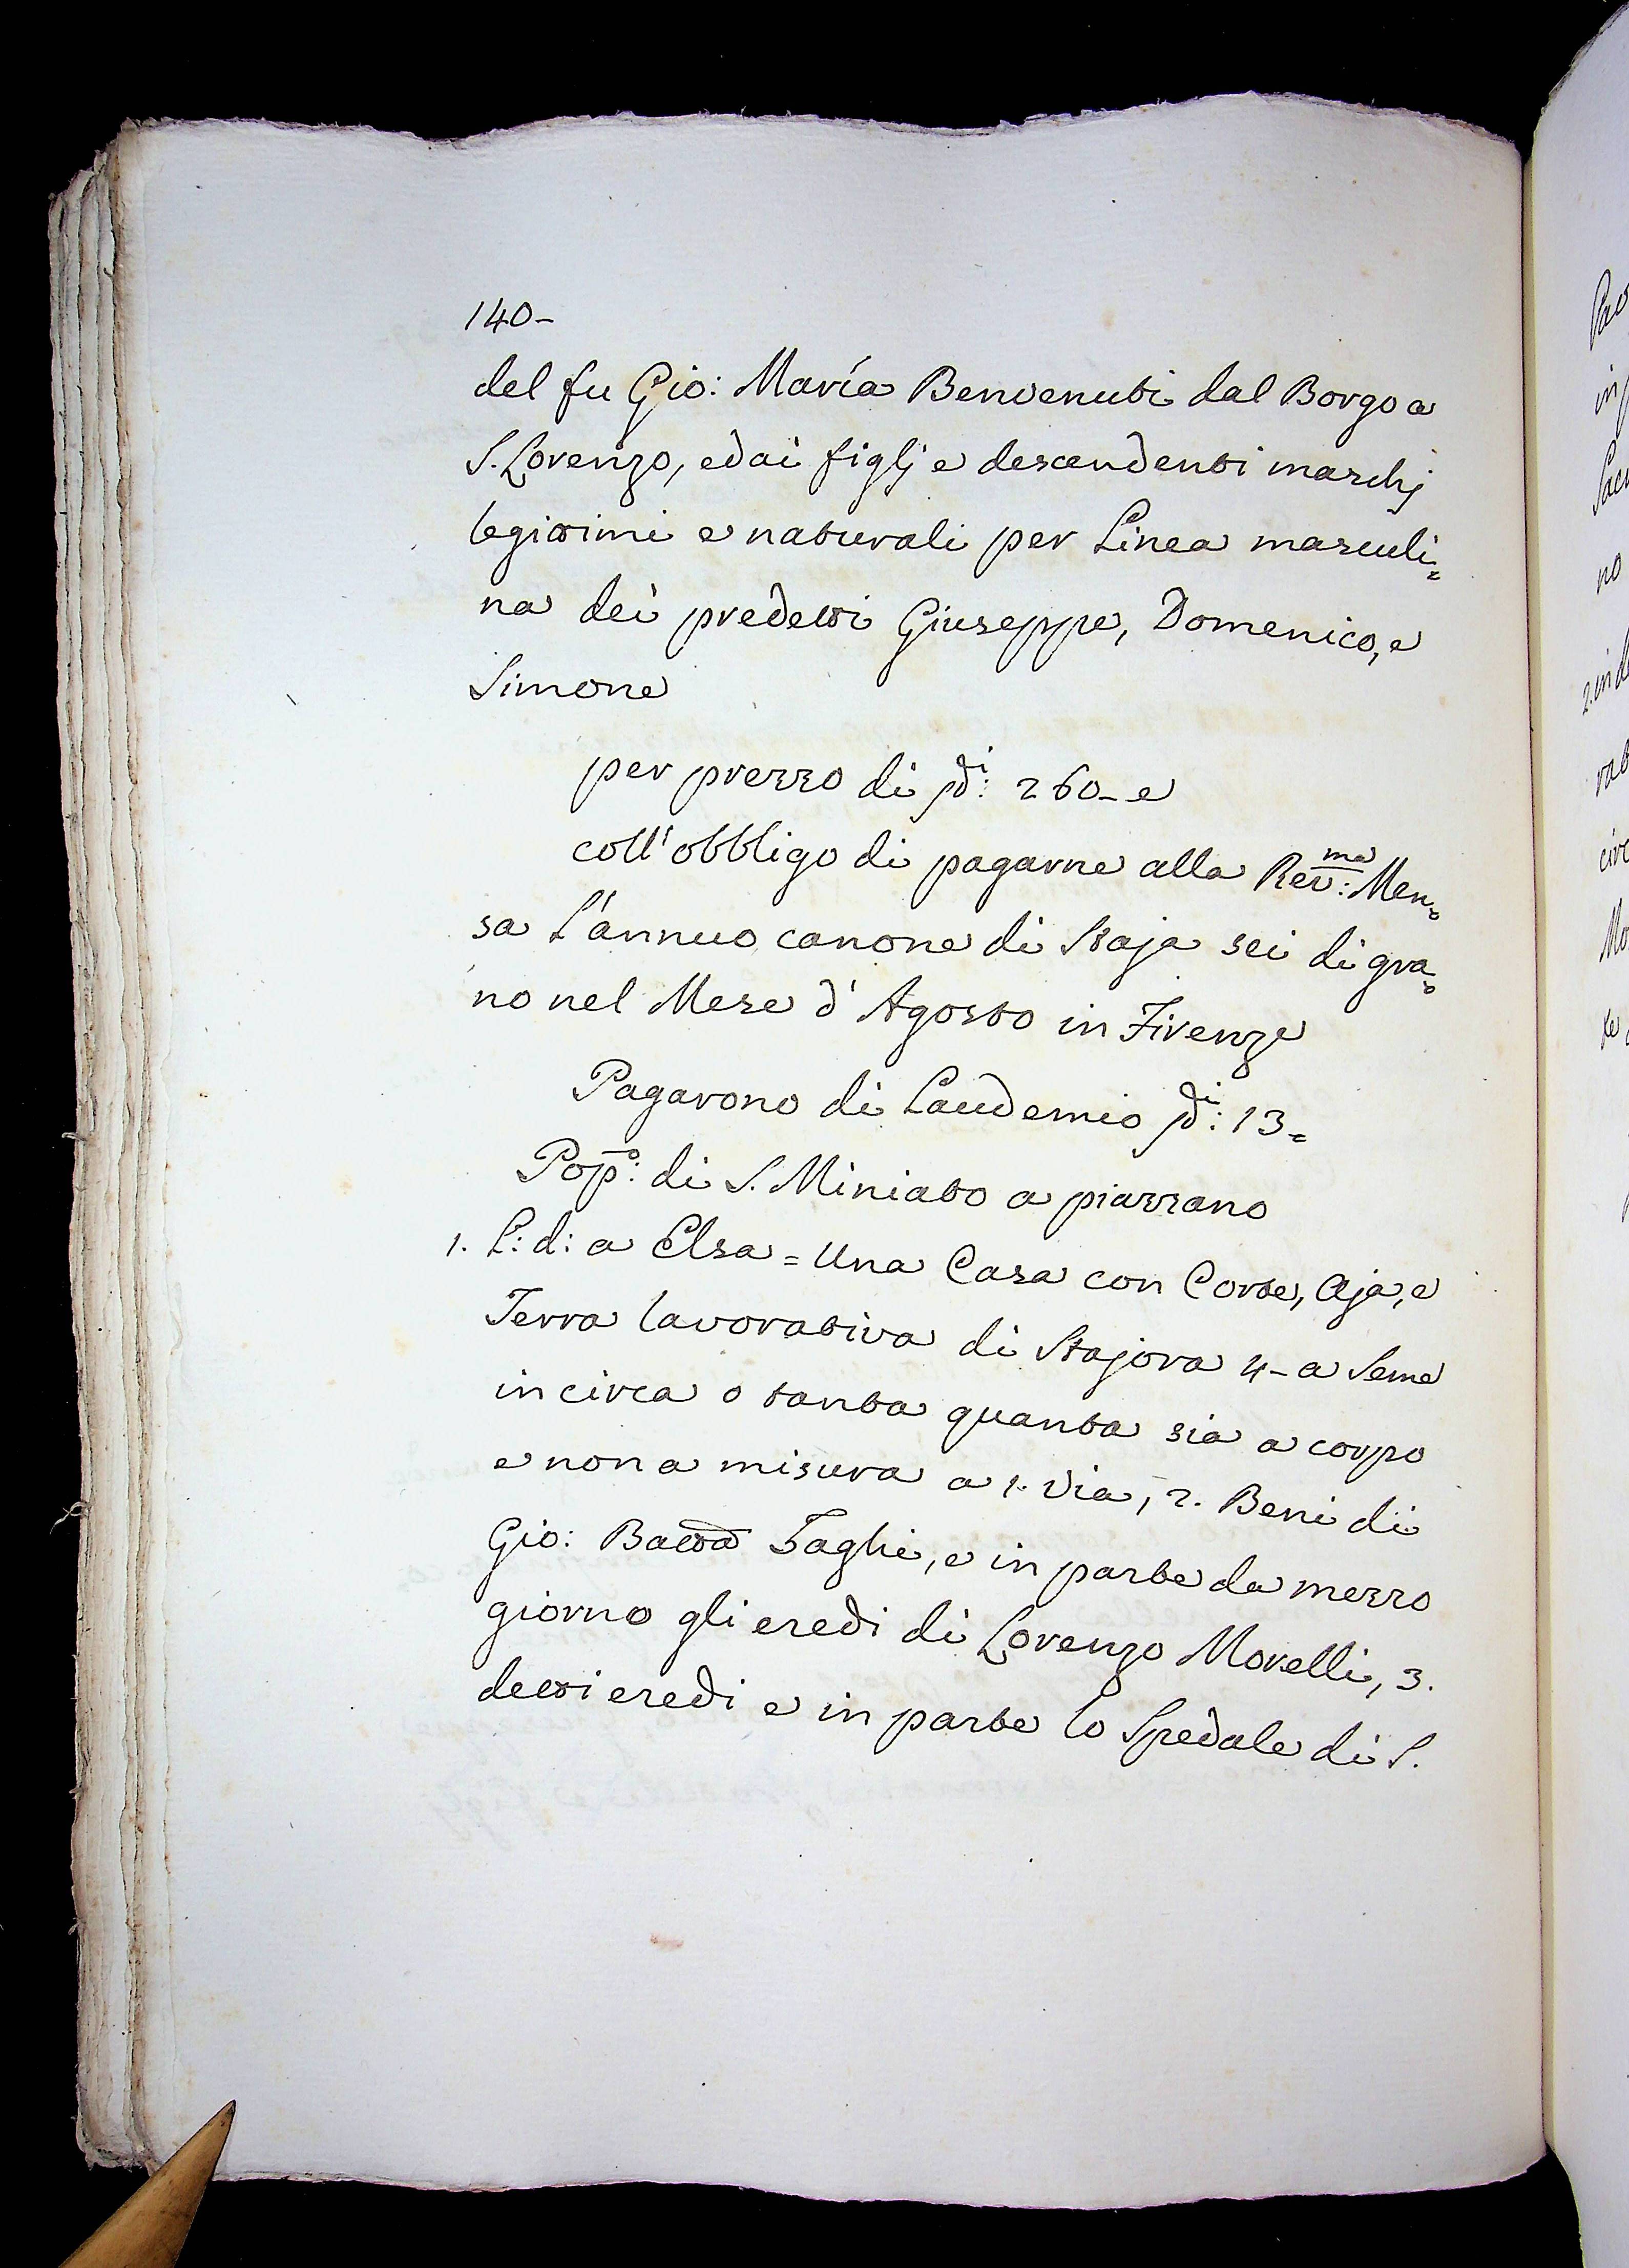 140-
del fu Gio: Maria Benvenuti dal Borgo a
S. Lorenzo, ed ai figlj e descendenti maschj
legittimi e naturali per Linea masculi=
na dei predetti Giuseppe, Domenico, e
Simone
per prezzo di pdi: 260- e
coll'obbligo di pagarne alla Revma: Men=
sa L'annuo canone di Staja sei di gra=
no nel Mese d'Agosto in Firenze
Pagarono di Laudemio pdi: 13=
Popo: di S. Miniato a piazzano
1. L: d: a Elsa = Una Casa con Corte, Aja, e
Terra lavorativa di Stajora 4- a Seme
in circa o tanta quanta sia a corpo
e non a misura a 1. Via, 2. Beni di
Gio: Batta Taghi, e in parte da mezzo
giorno gli eredi di Lorenzo Morelli, 3.
detti eredi e in parte lo Spedale di S.